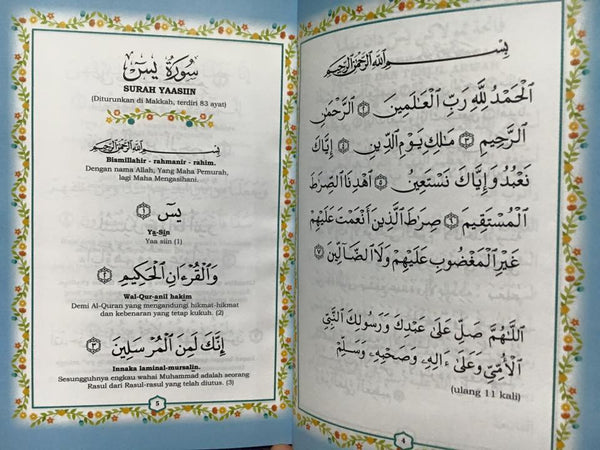 بِسْمِ اللَّهِ الرَّحْمَٰنِ الرَّحِيمِ
الْحَمْدُ لِلَّهِ رَبِّ الْعَالَمِينَ ﴿٢﴾ الرَّحْمَٰنِ
الرَّحِيمِ ﴿٣﴾ مَالِكِ يَوْمِ الدِّينِ ﴿٤﴾ إِيَّاكَ
نَعْبُدُ وَإِيَّاكَ نَسْتَعِينُ ﴿٥﴾ اهْدِنَا الصِّرَاطَ
الْمُسْتَقِيمَ ﴿٦﴾ صِرَاطَ الَّذِينَ أَنْعَمْتَ عَلَيْهِمْ
غَيْرِ الْمَغْضُوبِ عَلَيْهِمْ وَلَا الضَّالِّينَ ﴿٧﴾
اللَّهُمَّ صَلِّ عَلَىٰ عَبْدِكَ وَرَسُولِكَ النَّبِيِّ
الْأُمِّيِّ وَعَلَىٰ ءَالِهِ وَصَحْبِهِ وَسَلِّمْ
(ulang 11 kali)
4
سُورَةُ يسٓ
SURAH YAASIIN
(Diturunkan di Makkah, terdiri 83 ayat)
بِسْمِ اللَّهِ الرَّحْمَٰنِ الرَّحِيمِ
Bismillahir - rahmanir - rahim.
Dengan nama Allah, Yang Maha Pemurah,
lagi Maha Mengasihani.
يسٓ ﴿١﴾
Ya-Sin
Yaa siin (1)
وَالْقُرْءَانِ الْحَكِيمِ ﴿٢﴾
Wal-Qur-anil hakim
Demi Al-Quran yang mengandungi hikmat-hikmat
dan kebenaran yang tetap kukuh. (2)
إِنَّكَ لَمِنَ الْمُرْسَلِينَ ﴿٣﴾
Innaka laminal-mursalin.
Sesungguhnya engkau wahai Muhammad adalah seorang
Rasul dari Rasul-rasul yang telah diutus. (3)
5